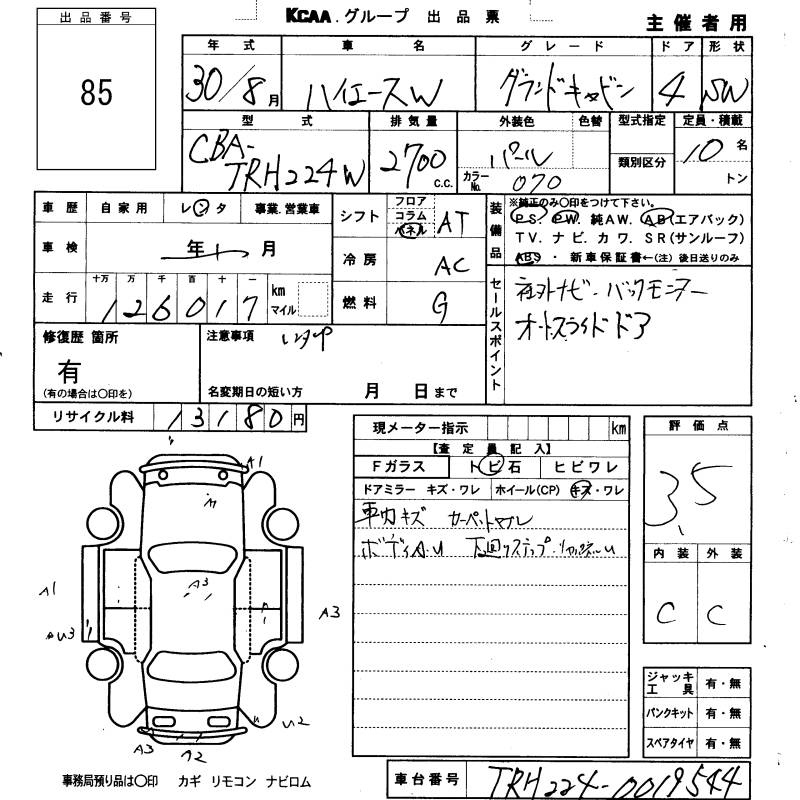 出品番号
85
KCAA.グループ 出品票
主催者用
年式 車名 グレード ドア 形状
30/8月 ハイエースW グランドキャビン 4 SW
型式 排気量 外装色 色替 型式指定 定員・積載
CBA-TRH224W 2700 c.c. パール カラーNo. 070 類別区分 10名 トン
車歴 自家用 レンタ 事業.営業車
シフト フロア コラム パネル AT
装備品
※純正のみ〇印をつけて下さい。
PS. PW. 純AW. AB(エアバック)
TV. ナビ. カワ. SR(サンルーフ)
ABS・新車保証書←(注) 後日送りのみ
車検 年 月
冷房 AC
走行 十万 万 千 百 十 一
126017 km マイル
燃料 G
セールスポイント
社外ナビ・バックモニター
オートスライドドア
修復歴 箇所
有
(有の場合は〇印を)
注意事項
名変期日の短い方 月 日まで
リサイクル料 13180円
現メーター指示 km
【査定員記入】
Fガラス トビ石 ヒビワレ
ドアミラー キズ・ワレ ホイール(CP) キズ・ワレ
車内キズ カーペットヤブレ
ボディA.U
評価点
3.5
内装 外装
C C
A1
A3
A1
A3
U2
A3
ジャッキ工具 有・無
パンクキット 有・無
スペアタイヤ 有・無
事務局預り品は〇印 カギ リモコン ナビロム
車台番号 TRH224-0019544